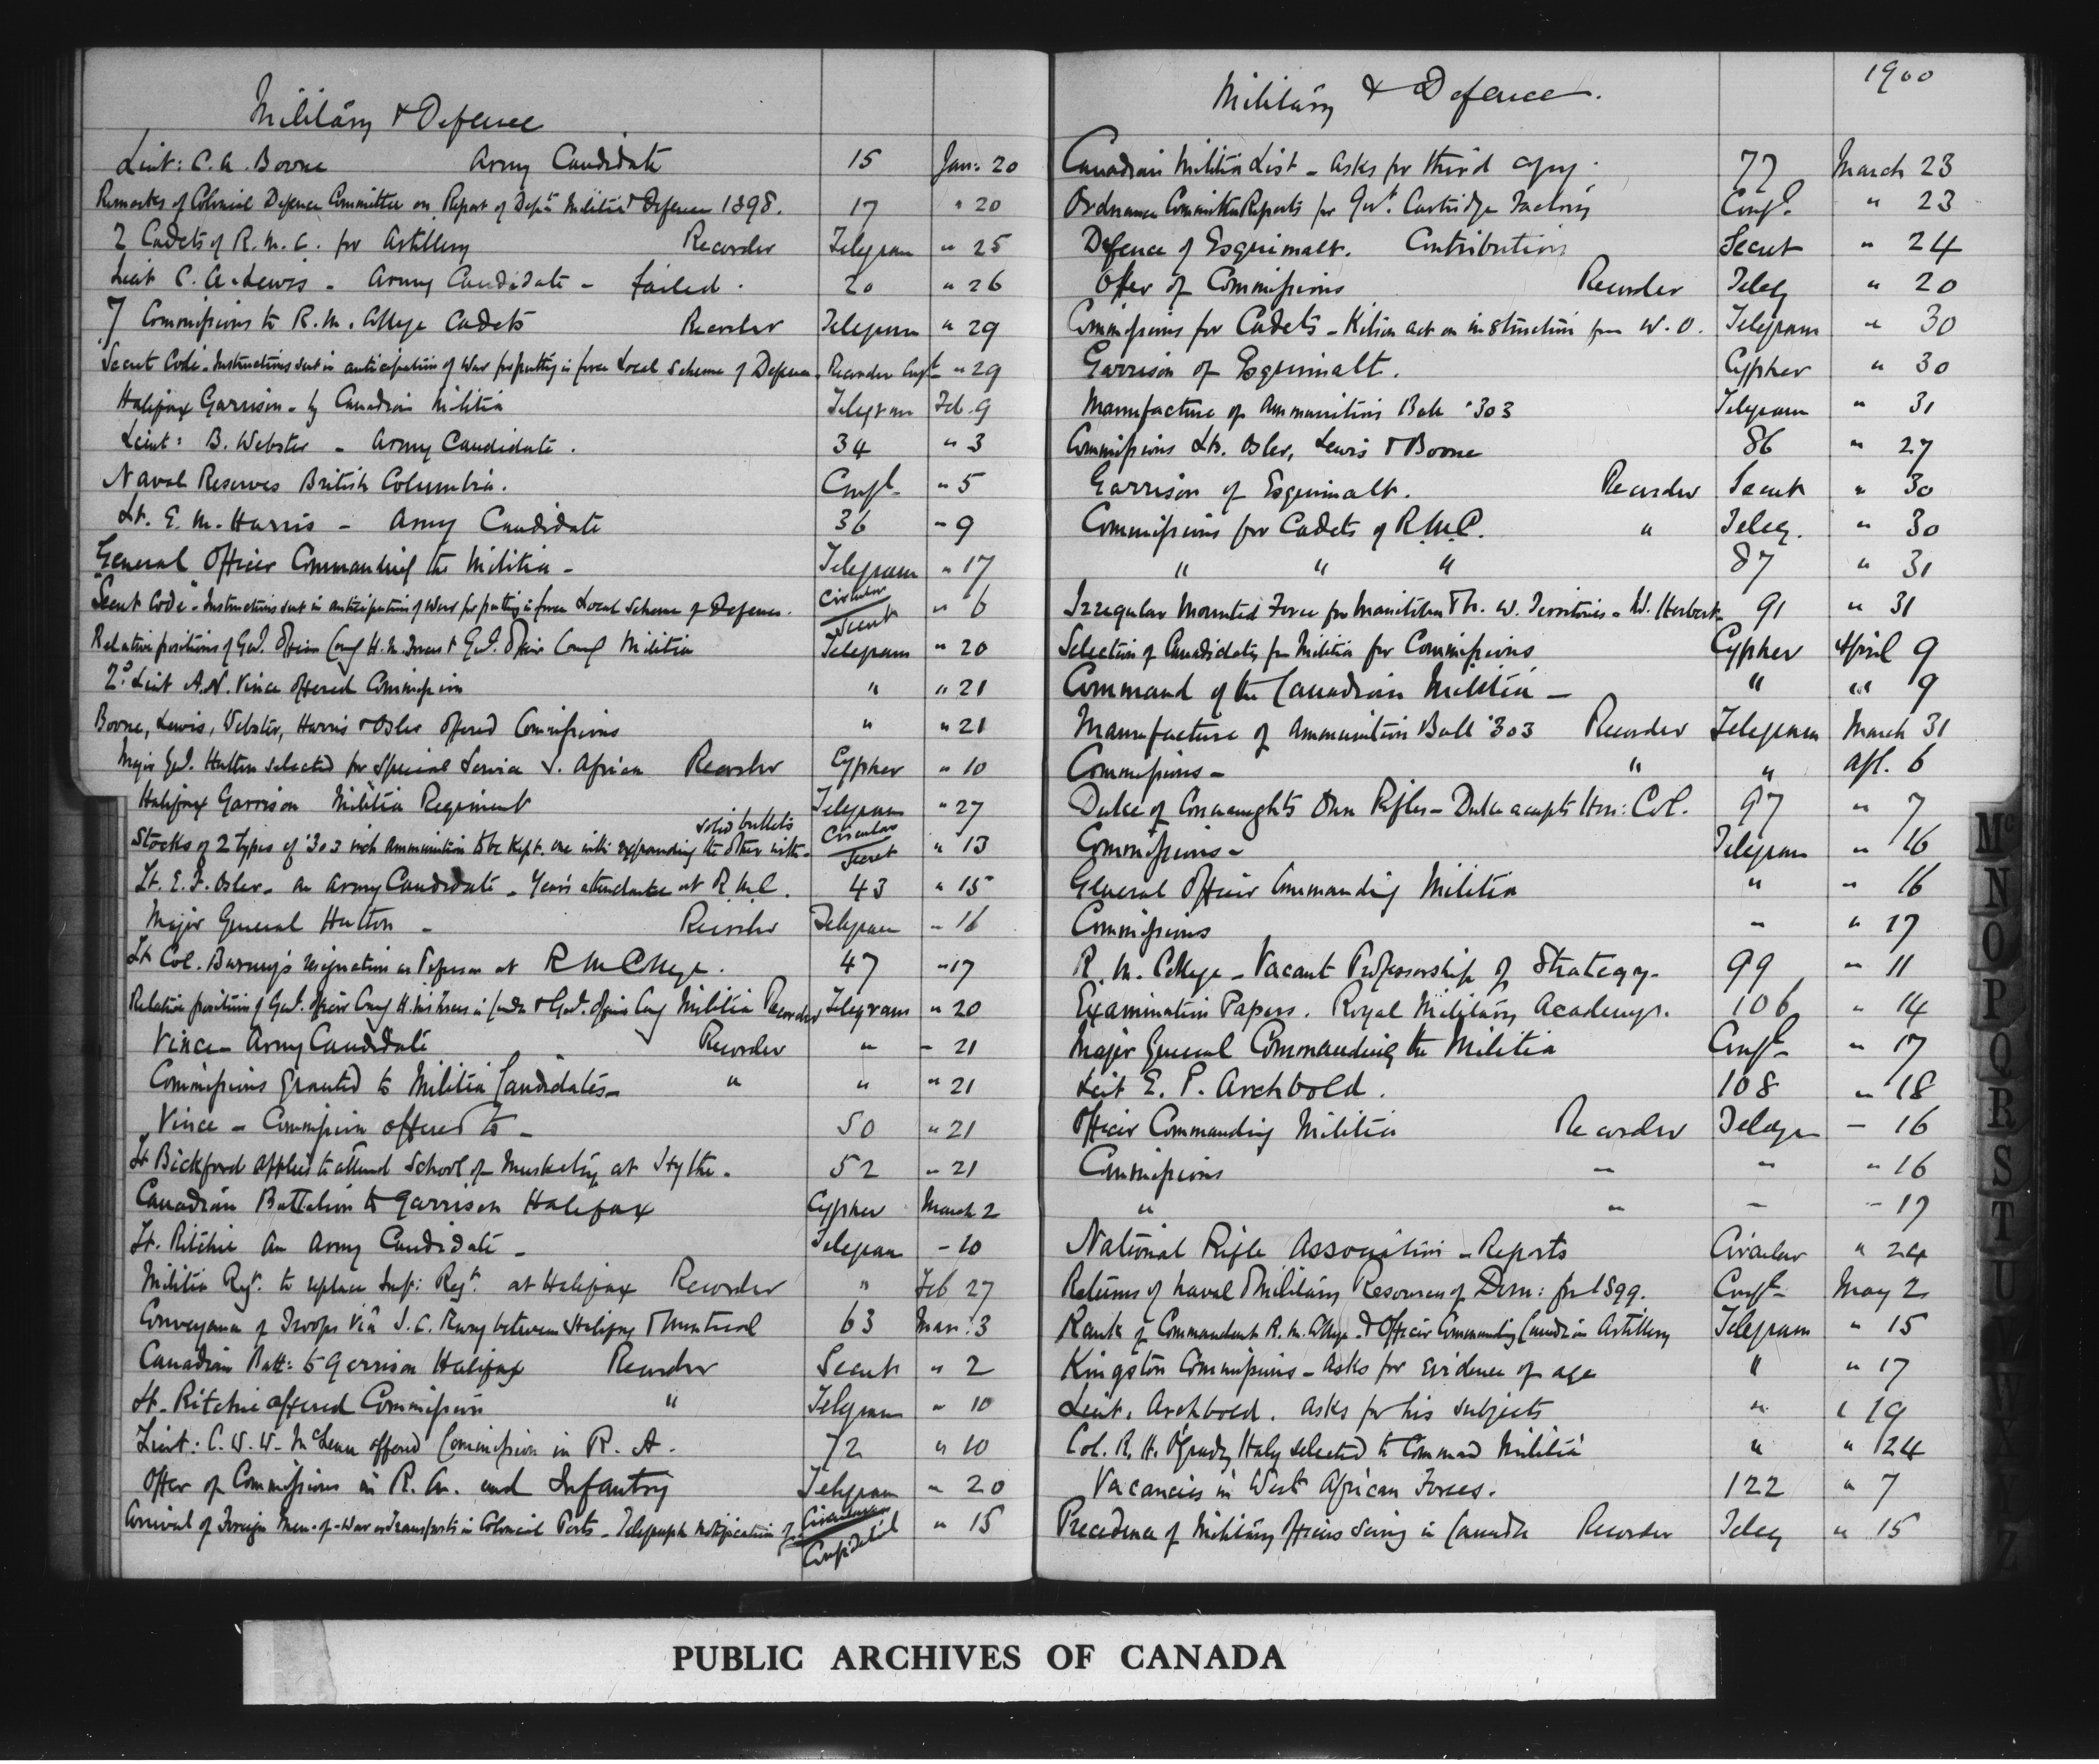 Military & Defence
Lieut: C. A. Boone Army Candidate 15 Jan: 20
Remarks of Colonial Defence Committee on Report of Dept Militia & Defence 1898. 17 " 20
2 Cadets of R. M. C. for Artillery Recorder Telegram " 25
Lieut C. A. Lewis - Army Candidate - failed. 20 " 26
7 Commissions to R. M. College Cadets Recorder Telegram " 29
"Secret Code" - Instructions sent in anticipation of War for putting in force Local Scheme of Defence - Recorder Conf'l " 29
Halifax Garrison - by Canadian Militia Telegram Feb. 9
Lieut: B. Webster - Army Candidate. 34 " 3
Naval Reserves British Columbia. Conf'l " 5
Lt. E. M. Harris - Army Candidate 36 " 9
General Officer Commanding the Militia - Telegram " 17
"Secret Code" - Instructions sent in anticipation of War for putting in force Local Scheme of Defence. Circular Secret " 6
Relative positions of Gen'l. Officer Comg H. M. Forces & Gen'l. Officer Comg Militia Telegram " 20
2d. Lieut A. N. Vince offered Commission " " 21
Boone, Lewis, Webster, Harris & Osler offered Commissions " " 21
Major Gen'l. Hutton selected for Special Service S. Africa Recorder Cypher " 10
Halifax Garrison Militia Regiment Telegram " 27
Stocks of 2 types of .303 inch ammunition to be kept. one with expanding the other with solid bullets Circular Secret " 13
Lt. E. F. Osler - an Army Candidate - Years attendance at R.M.C. 43 " 15
Major General Hutton - Recorder Telegram " 16
Lt Col. resignation as Professor at R M College. 47 " 17
Relative positions of Gen'l. Officer Comg H. M's Forces in Canada & Gen'l. Officer Comg Militia Recorder Telegram " 20
Vince - Army Candidate Recorder " - 21
Commissions granted to Militia Candidates - " " " 21
Vince - Commission offered to - 50 " 21
Lt Bickford applied to attend School of Musketry at Hythe. 52 " 21
Canadian Battalion to garrison Halifax Cypher March 2
Lt. Ritchie an Army Candidate - Telegram - 10
Militia Regt. to replace Imp: Regt. at Halifax Recorder " Feb 27
Conveyance of Troops via I. C. Rway between Halifax & Montreal 63 Mar: 3
Canadian Batt: to garrison Halifax Recorder Secret " 2
Lt. Ritchie offered Commission " Telegram " 10
Lieut: C. W. W. McLean offered Commission in R. A. 72 " 10
Offer of Commissions in R. A. and Infantry Telegram " 20
Arrival of Foreign Men-of-War or Transports in Colonial Ports - Telegraph notification of - Circular Confidential " 15
1900
Military & Defence.
Canadian Militia List - asks for third copy. 77 March 23
Ordnance Committee Reports for Gov't. Cartridge Factory Conf'l. " 23
Defence of Esquimalt. Contribution Secret " 24
Offer of Commissions Recorder Teleg " 20
Commissions for Cadets - act on instruction from W. O. Telegram " 30
Garrison of Esquimalt. Cypher " 30
Manufacture of Ammunition Ball .303 Telegram " 31
Commissions Lts. Osler, Lewis & Boone 86 " 27
Garrison of Esquimalt. Recorder Secret " 30
Commissions for Cadets of R.M.C. " Teleg. " 30
" " " 87 " 31
Irregular Mounted Force for Manitoba & N. W. Territories - W. Herbert 91 " 31
Selection of Candidates from Militia for Commissions Cypher April 9
Command of the Canadian Militia - " " 9
Manufacture of Ammunition Ball .303 Recorder Telegram March 31
Commissions - " " Apl. 6
Duke of Connaughts Own Rifles - Duke accepts Hon: Col. 97 " 7
Commissions - Telegram " 16
General Officer Commanding Militia " " 16
Commissions - " 17
R. M. College - Vacant Professorship of Strategy. 99 " 11
Examination Papers. Royal Military Academy. 106 " 14
Major General Commanding the Militia Conf'l " 17
Lieut E. P. Archbold. 108 " 18
Officer Commanding Militia Recorder Telegm - 16
Commissions " " " 16
" " - - 17
National Rifle Association - Reports Circular " 24
Returns of Naval & Military Resources of Dom: for 1899. Conf'l May 2
Rank of Commandant R. M. College - & Officer Commanding Canadian Artillery Telegram " 15
Kingston Commissions - asks for evidence of age " " 17
Lieut. Archbold. asks for his subjects " " 19
Col. R. H. O'Grady Haly selected to Command Militia " " 24
Vacancies in West African Forces. 122 " 7
Precedence of Military Officers Serving in Canada Recorder Teleg " 15
Mc
N
O
P
Q
R
S
T
U
Z
PUBLIC ARCHIVES OF CANADA